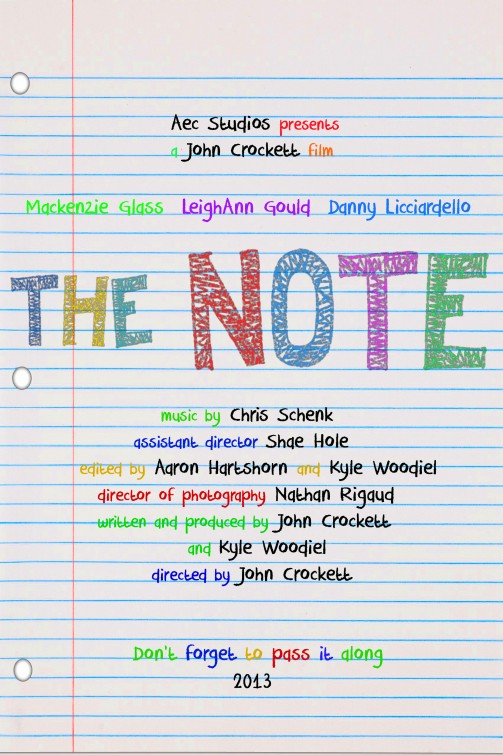 Aec Studios presents
a John Crockett film
Mackenzie Glass LeighAnn Gould Danny Licciardello
THE NOTE
music by Chris Schenk
assistant director Shae Hole
edited by Aaron Hartshorn and Kyle Woodiel
director of photography Nathan Rigaud
written and produced by John Crockett
and Kyle Woodiel
directed by John Crockett
Don't forget to pass it along
2013